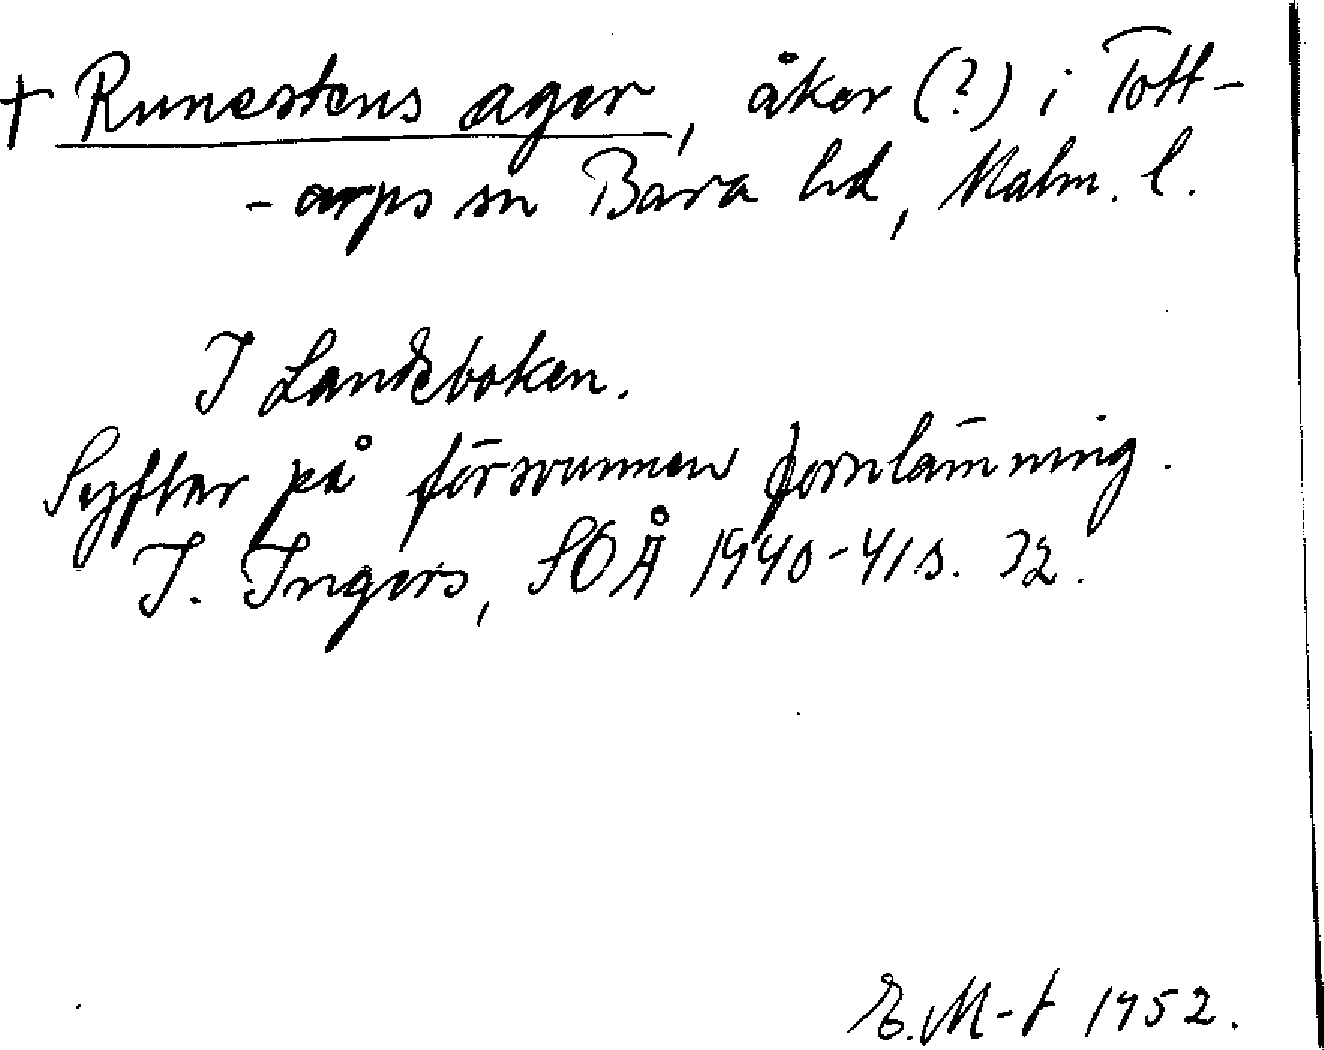 † Runestens ager, åker (?) i Tott-
-arps sn Bara hd, Malm. l.
I Landeboken.
Syftar på försvunnen fornlämning.
I. Ingers, SOÅ 1940-41 s. 32.
E. M-t 1952.